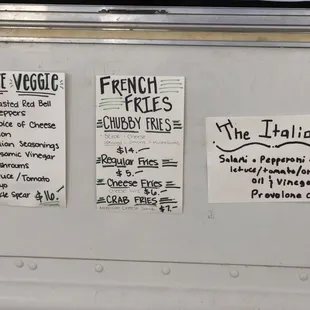 E VEGGIE
asted Red Bell
eppers
oice of Cheese
ion
lian Seasonings
samic Vinegar
shrooms
uce / Tomato
yo
le Spear $16.-
FRENCH
FRIES
CHUBBY FRIES
Steak - Cheese
$14.-
Regular Fries
$5.-
Cheese Fries
$6.-
CRAB FRIES
$7.-
The Italia
Salami • Pepperoni •
letuce/tomato/on
oil & Vinega
Provolone c